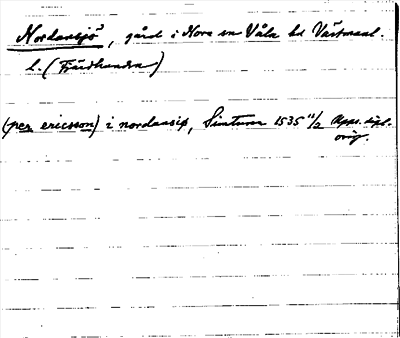 Nordansjö, gård i Nora sn Våla hd Västmanl.
l. (Fjädhundra)
(per ericsson) i nordansiø, Simtuna 1535 11/2 Upps. dipl.
orig.